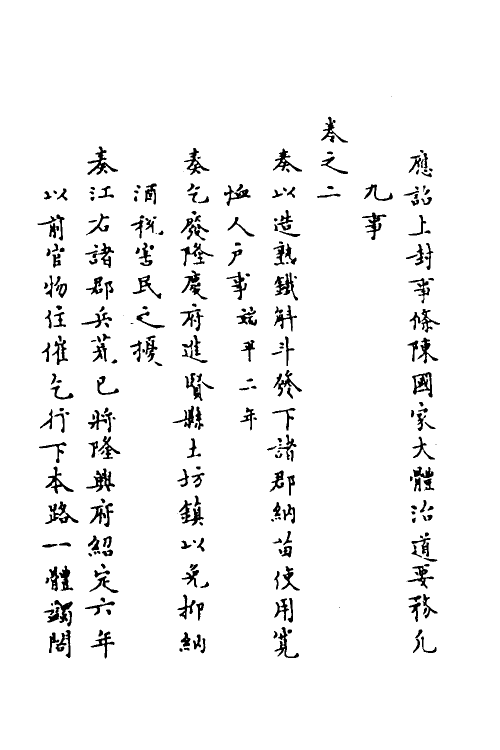 應詔上封事條陳國家大體治道要務凡
九事
卷之二
奏以造熟鐵斛斗發下諸郡納苗使用寬
恤人戶事端平二年
奏乞廢隆慶府進賢縣土坊鎮以免抑納
酒稅害民之擾
奏江右諸郡兵荒已將隆興府紹定六年
以前官物住催乞行下本路一體蠲閣